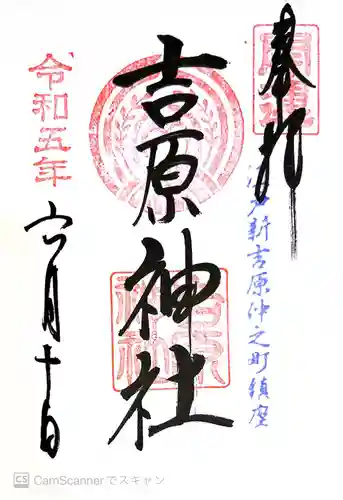 奉拝
開運
江戸新吉原仲之町鎮座
吉原神社
吉原神社
令和五年
六月十日
CS CamScannerでスキャン